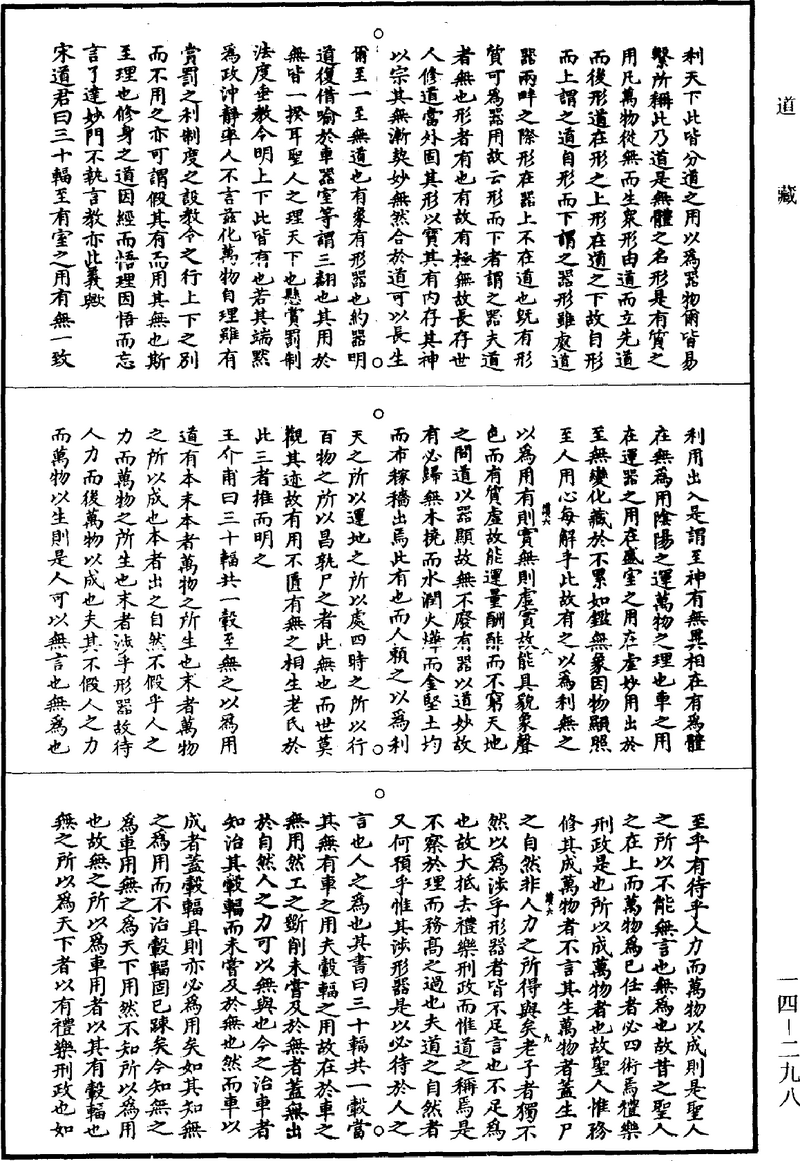 道藏
利天下此皆分道之用以為器物爾皆易
繫所稱此乃道是無體之名形是有質之
用凡萬物從無而生衆形由道而立先道
而後形道在形之上形在道之下故自形
而上謂之道自形而下謂之器形雖處道
器兩畔之際形在器上不在道也既有形
質可為器用故云形而下者謂之器夫道
者無也形者有也有故有極無故長存世
人修道當外固其形以寶其有内存其神
以宗其無漸契妙無然合於道可以長生
爾至一至無道也有象有形器也約器明
道復借喻於車器室等謂三翻也其用於
無皆一揆耳聖人之理天下也懸賞罰制
法度垂教令明上下此皆有也若其端默
為政沖靜率人不言玆化萬物自理雖有
賞罰之利制度之設教令之行上下之別
而不用之亦可謂假其有而用其無也斯
至理也修身之道因經而悟理因悟而忘
言了達妙門不執言教亦此義歟
宋道君曰三十輻至有室之用有無一致
利用出入是謂至神有無異相在有為體
在無為用陰陽之運萬物之理也車之用
在運器之用在盛室之用在虛妙用出於
至無變化藏於不累如鑑無象因物顯照
至人用心每解乎此故有之以為利無之
以為用有則實無則虛實故能具貌象聲
色而有質虛故能運量酬酢而不窮天地
之間道以器顯故無不廢有器以道妙故
有必歸無木撓而水潤火熯而金堅土均
而布稼穡出焉此有也而人賴之以為利
天之所以運地之所以處四時之所以行
百物之所以昌孰尸之者此無也而世莫
觀其迹故有用不匱有無之相生老氏於
此三者推而明之
王介甫曰三十輻共一轂至無之以為用
道有本末本者萬物之所生也末者萬物
之所以成也本者出之自然不假乎人之
力而萬物之所生也末者涉乎形器故待
人力而後萬物以成也夫其不假人之力
而萬物以生則是人可以無言也無為也
至乎有待乎人力而萬物以成則是聖人
之所以不能無言也無為也故昔之聖人
之在上而萬物為已任者必四術焉禮樂
刑政是也所以成萬物者也故聖人惟務
修其成萬物者不言其生萬物者蓋生尸
之自然非人力之所得與矣老子者獨不
然以為涉乎形器者皆不足言也不足為
也故大抵去禮樂刑政而惟道之稱焉是
不察於理而務高之過也夫道之自然者
又何預乎惟其涉形器是以必待於人之
言也人之為也其書曰三十輻共一轂當
其無有車之用夫轂輻之用故在於車之
無用然工之斲削未嘗及於無者蓋無出
於自然人之力可以無與也今之治車者
知治其轂輻而未嘗及於無也然而車以
成者蓋轂輻具則亦必為用矣如其知無
之為用而不治轂輻固已踈矣今知無之
為車用無之為天下用然不知所以為用
也故無之所以為車用者以其有轂輻也
無之所以為天下者以有禮樂刑政也如
一四-二九八